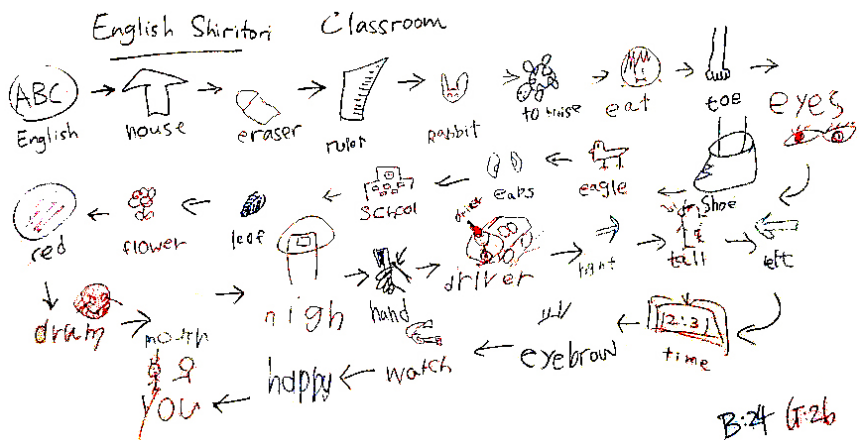 English Shiritori Classroom
ABC
English
house
eraser
ruler
Rabbit
eat
toe
eyes
shoe
eagle
ears
school
leaf
flower
red
drum
mouth
nigh
hand
driver
right
tall
left
12:31
time
eyebrow
watch
happy
YOU
B:24 G:26